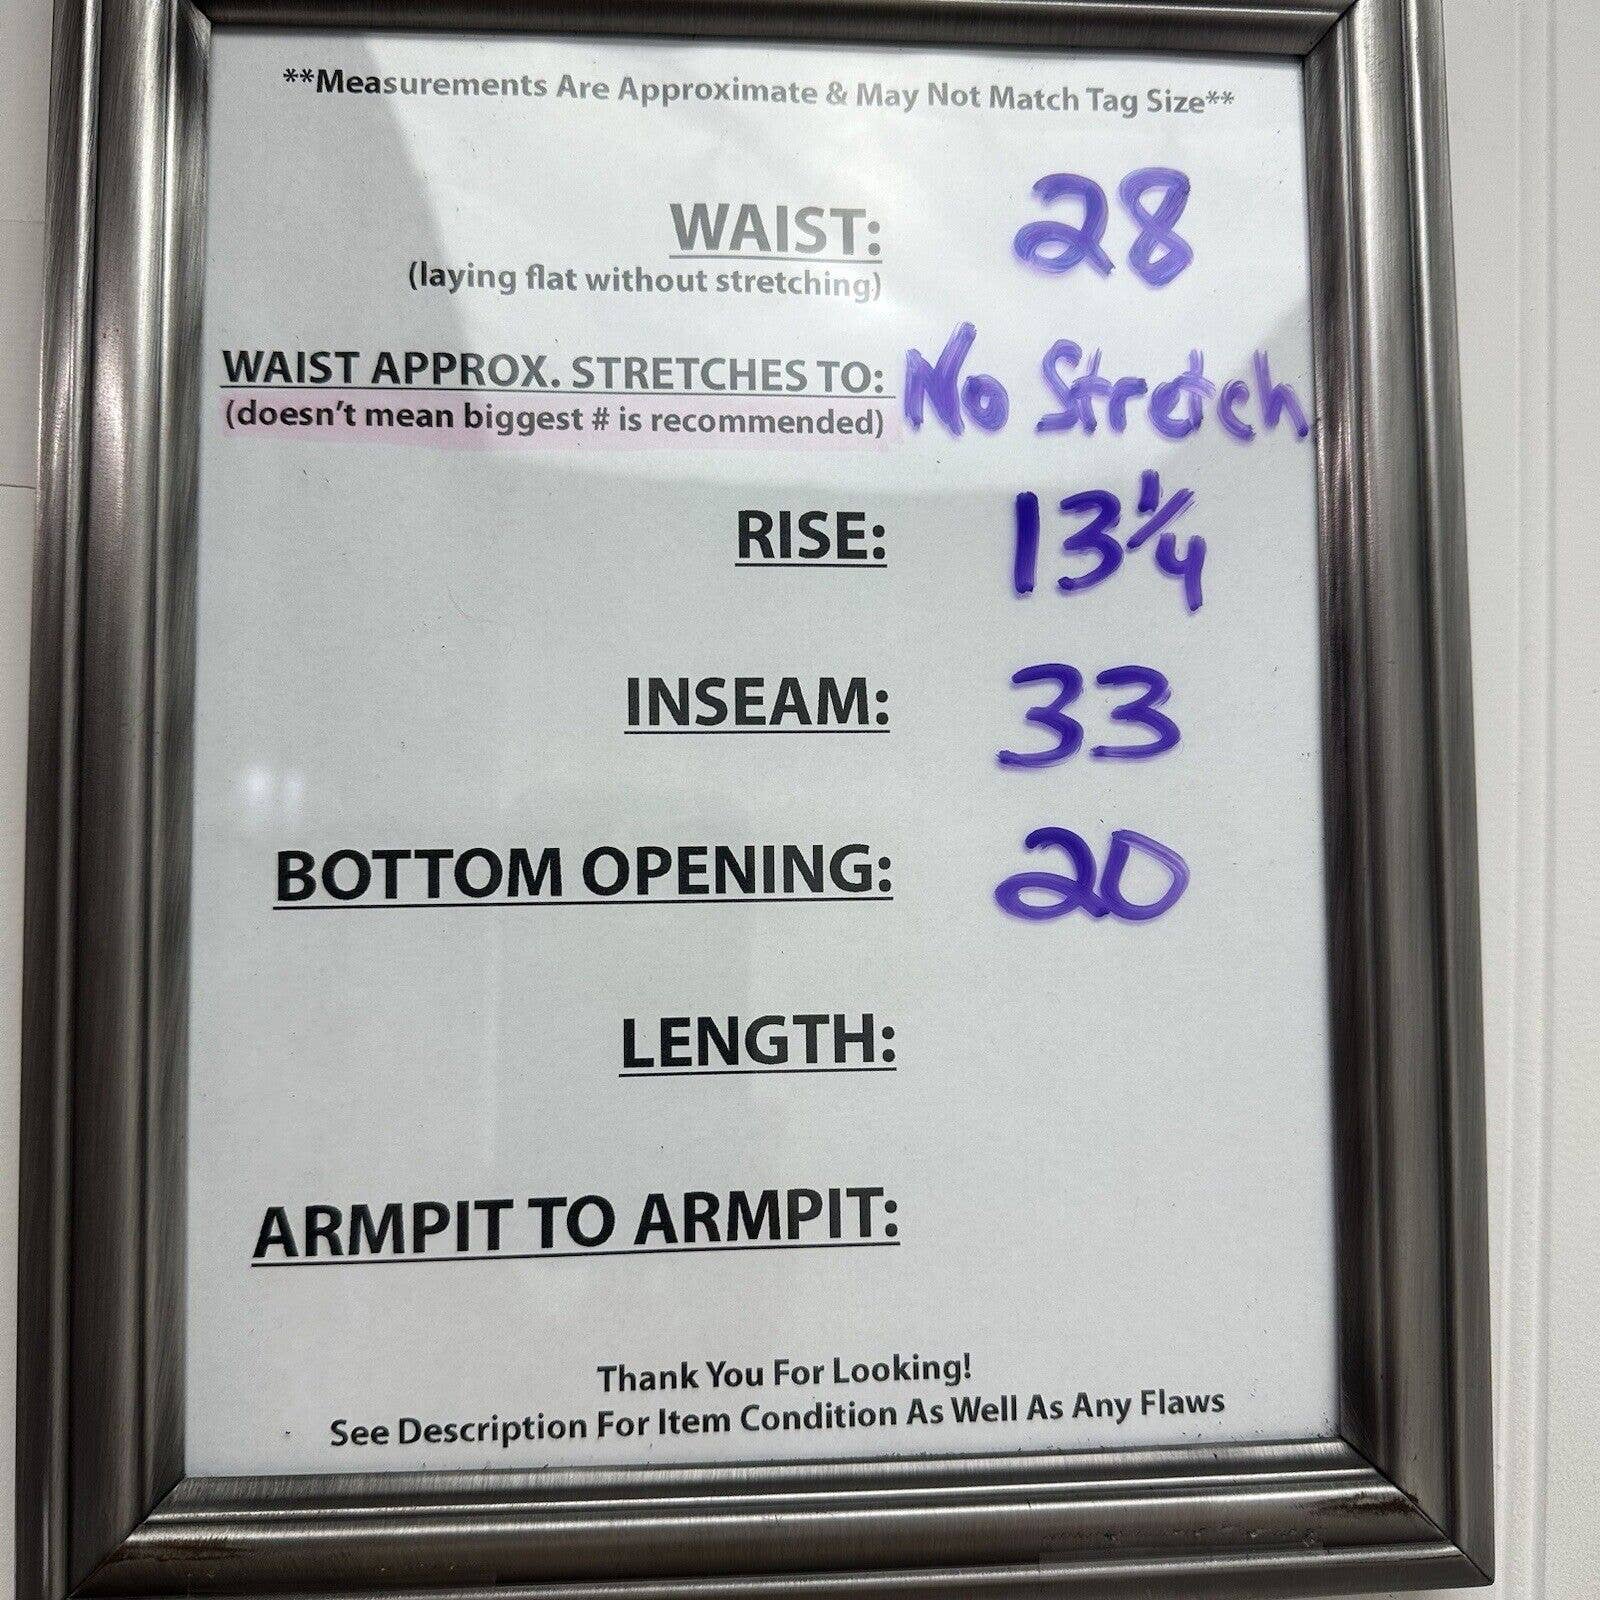 **Measurements Are Approximate & May Not Match Tag Size**
WAIST: 28
(laying flat without stretching)
WAIST APPROX. STRETCHES TO: No Stretch
(doesn't mean biggest # is recommended)
RISE: 13 1/4
INSEAM: 33
BOTTOM OPENING: 20
LENGTH:
ARMPIT TO ARMPIT:
Thank You For Looking!
See Description For Item Condition As Well As Any Flaws